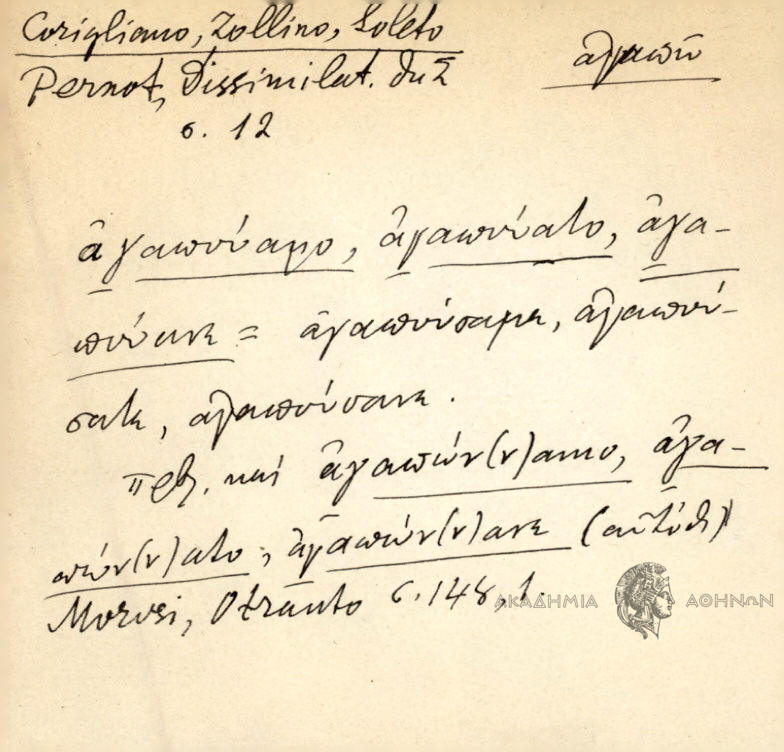 Corigliano, Zollino, Soleto
ἀγαπῶ
Pernot, Dissimilat. du Σ
σ. 12
ἀγαπούαμο, ἀγαπούατο, ἀγα-
πούανε = ἀγαπούσαμε, ἀγαπού-
σατε, ἀγαπούσανε.
πρβ. καί ἀγαπών(ν)αμο, ἀγα-
πών(ν)ατο, ἀγαπών(ν)ανε (αὐτόθι)
Morosi, Otranto σ. 148, 1.
ΑΚΑΔΗΜΙΑ ΑΘΗΝΩΝ